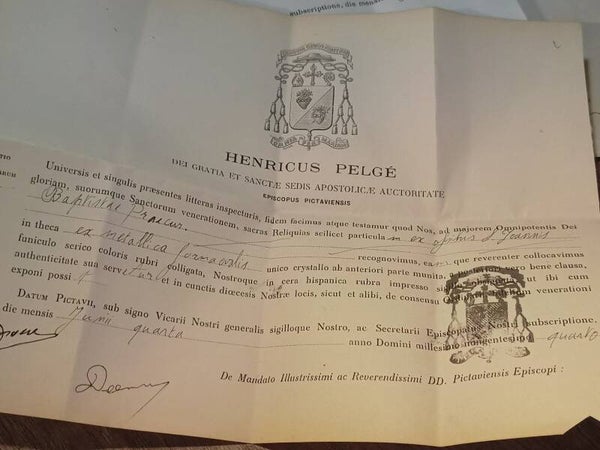 subscriptione, die mensis
HENRICUS PELGÉ
DEI GRATIA ET SANCTÆ SEDIS APOSTOLICÆ AUCTORITATE
EPISCOPUS PICTAVIENSIS
Universis et singulis præsentes litteras inspecturis, fidem facimus atque testamur quod Nos, ad majorem Omnipotentis Dei
gloriam, suorumque Sanctorum venerationem, sacras Reliquias scilicet particulam ex ossibus S. Joannis
Baptistae Praecur. recognovimus, eam que reverenter collocavimus
in theca ex metallica unico crystallo ab anteriori parte munita, bene clausa,
funiculo serico coloris rubri colligata, Nostroque in cera hispanica rubra impresso ut ibi cum
authenticitate sua servetur et in cunctis diœcesis Nostræ locis, sicut et alibi, de consensu venerationi
exponi possit
DATUM PICTAVII, sub signo Vicarii Nostri generalis sigilloque Nostro, ac Secretarii Episcopatus Nostri subscriptione,
die mensis Junii quarta anno Domini millesimo nongentesimo quarto
De Mandato Illustrissimi ac Reverendissimi DD. Pictaviensis Episcopi :